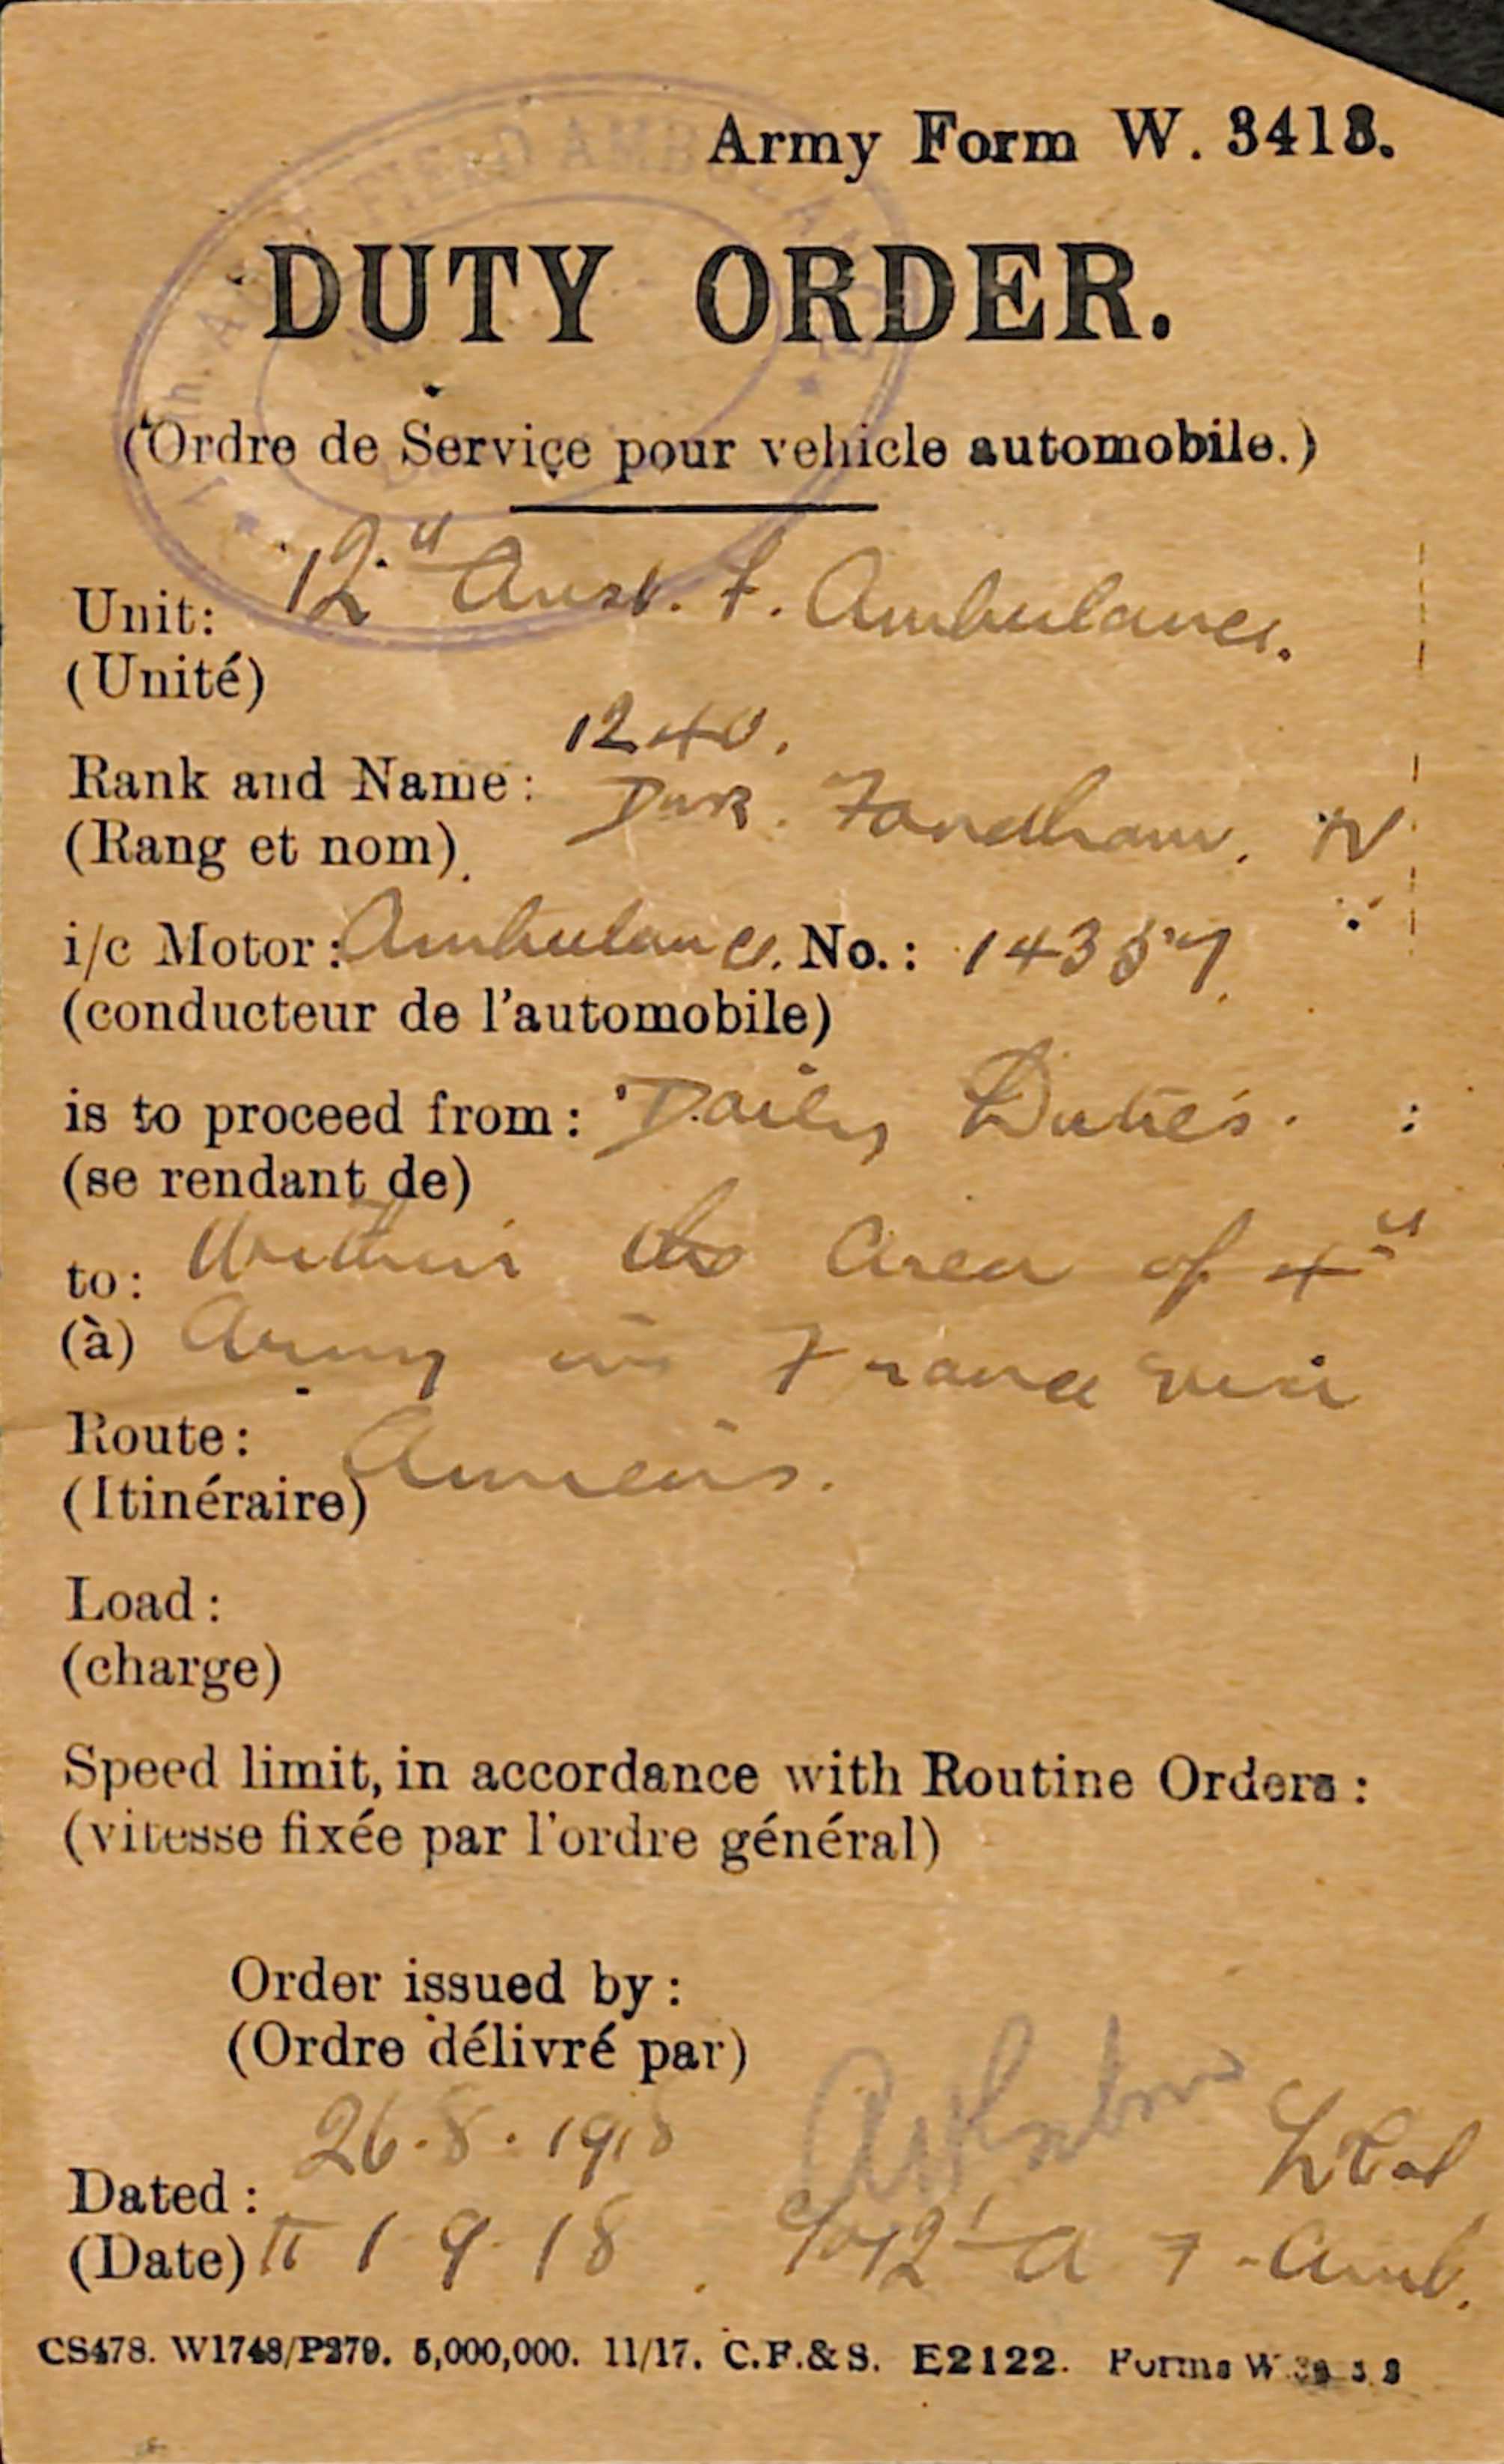 Army Form W. 3413.
FIELD AMBULANCE
DUTY ORDER.
(Ordre de Serviçe pour vehicle automobile.)
Unit: 12th Aust. F. Ambulance.
(Unité)
1240.
Rank and Name: Dvr. Fordham. W
(Rang et nom)
i/c Motor: Ambulance. No.: 14357.
(conducteur de l'automobile)
is to proceed from: Daily Duties.
(se rendant de)
to: Within the area of 4th
(à) Army in France via
Route: Amiens.
(Itinéraire)
Load:
(charge)
Speed limit, in accordance with Routine Orders:
(vitesse fixée par l'ordre général)
Order issued by:
(Ordre délivré par)
26.8.1918
Dated: Lt Col
(Date) to 1 9 18 12 A F Amb.
CS478. W1748/P279. 5,000,000. 11/17. C.F.&S. E2122. Forms W